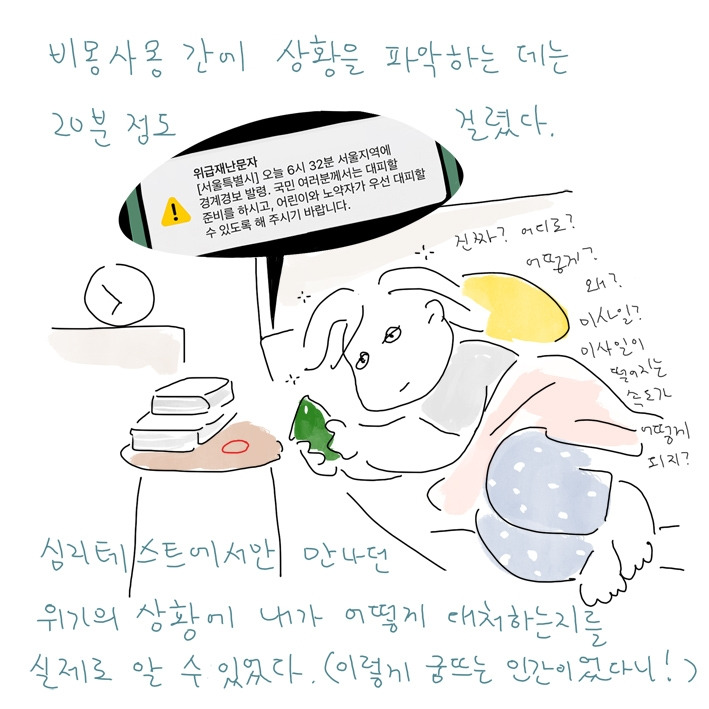 비몽사몽 간에 상황을 파악하는 데는
20분 정도 걸렸다.
위급재난문자
[서울특별시] 오늘 6시 32분 서울지역에
경계경보 발령. 국민 여러분께서는 대피할
준비를 하시고, 어린이와 노약자가 우선 대피할
수 있도록 해 주시기 바랍니다.
진짜? 어디로?
어떻게?
왜?
미사일?
미사일이
떨어지는
속도가
어떻게
되지?
심리테스트에서만 만나던
위기의 상황에 내가 어떻게 대처하는지를
실제로 알 수 있었다. (이렇게 굼뜨는 인간이었다니!)